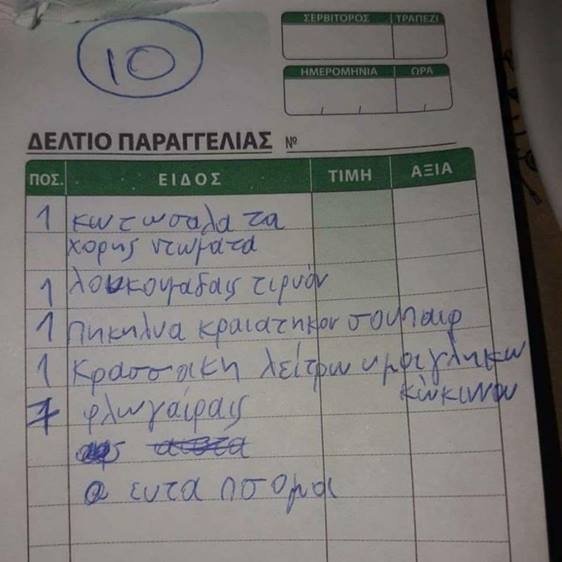 10
ΣΕΡΒΙΤΟΡΟΣ ΤΡΑΠΕΖΙ
ΗΜΕΡΟΜΗΝΙΑ ΩΡΑ
ΔΕΛΤΙΟ ΠΑΡΑΓΓΕΛΙΑΣ Νο
ΠΟΣ. ΕΙΔΟΣ ΤΙΜΗ ΑΞΙΑ
1 κωτωσαλατα
χορης ντωματα
1 λουκουμαδαις τιριόν
1 πηκηλυα κραιατηκον σουπαιρ
1 Κρασσακη λείτρω ημοιγληκω
κώκινου
7 φλωγαίραις
ευτα ποσομαι